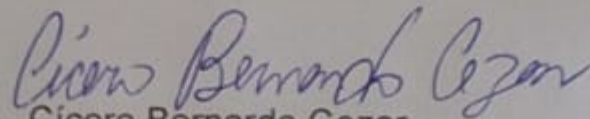 Cícero Bernardo Cezar
Cícero Bernardo Cezar